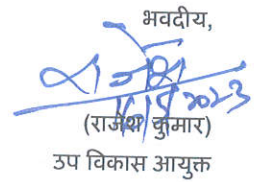 भवदीय,
(राजेश कुमार)
उप विकास आयुक्त